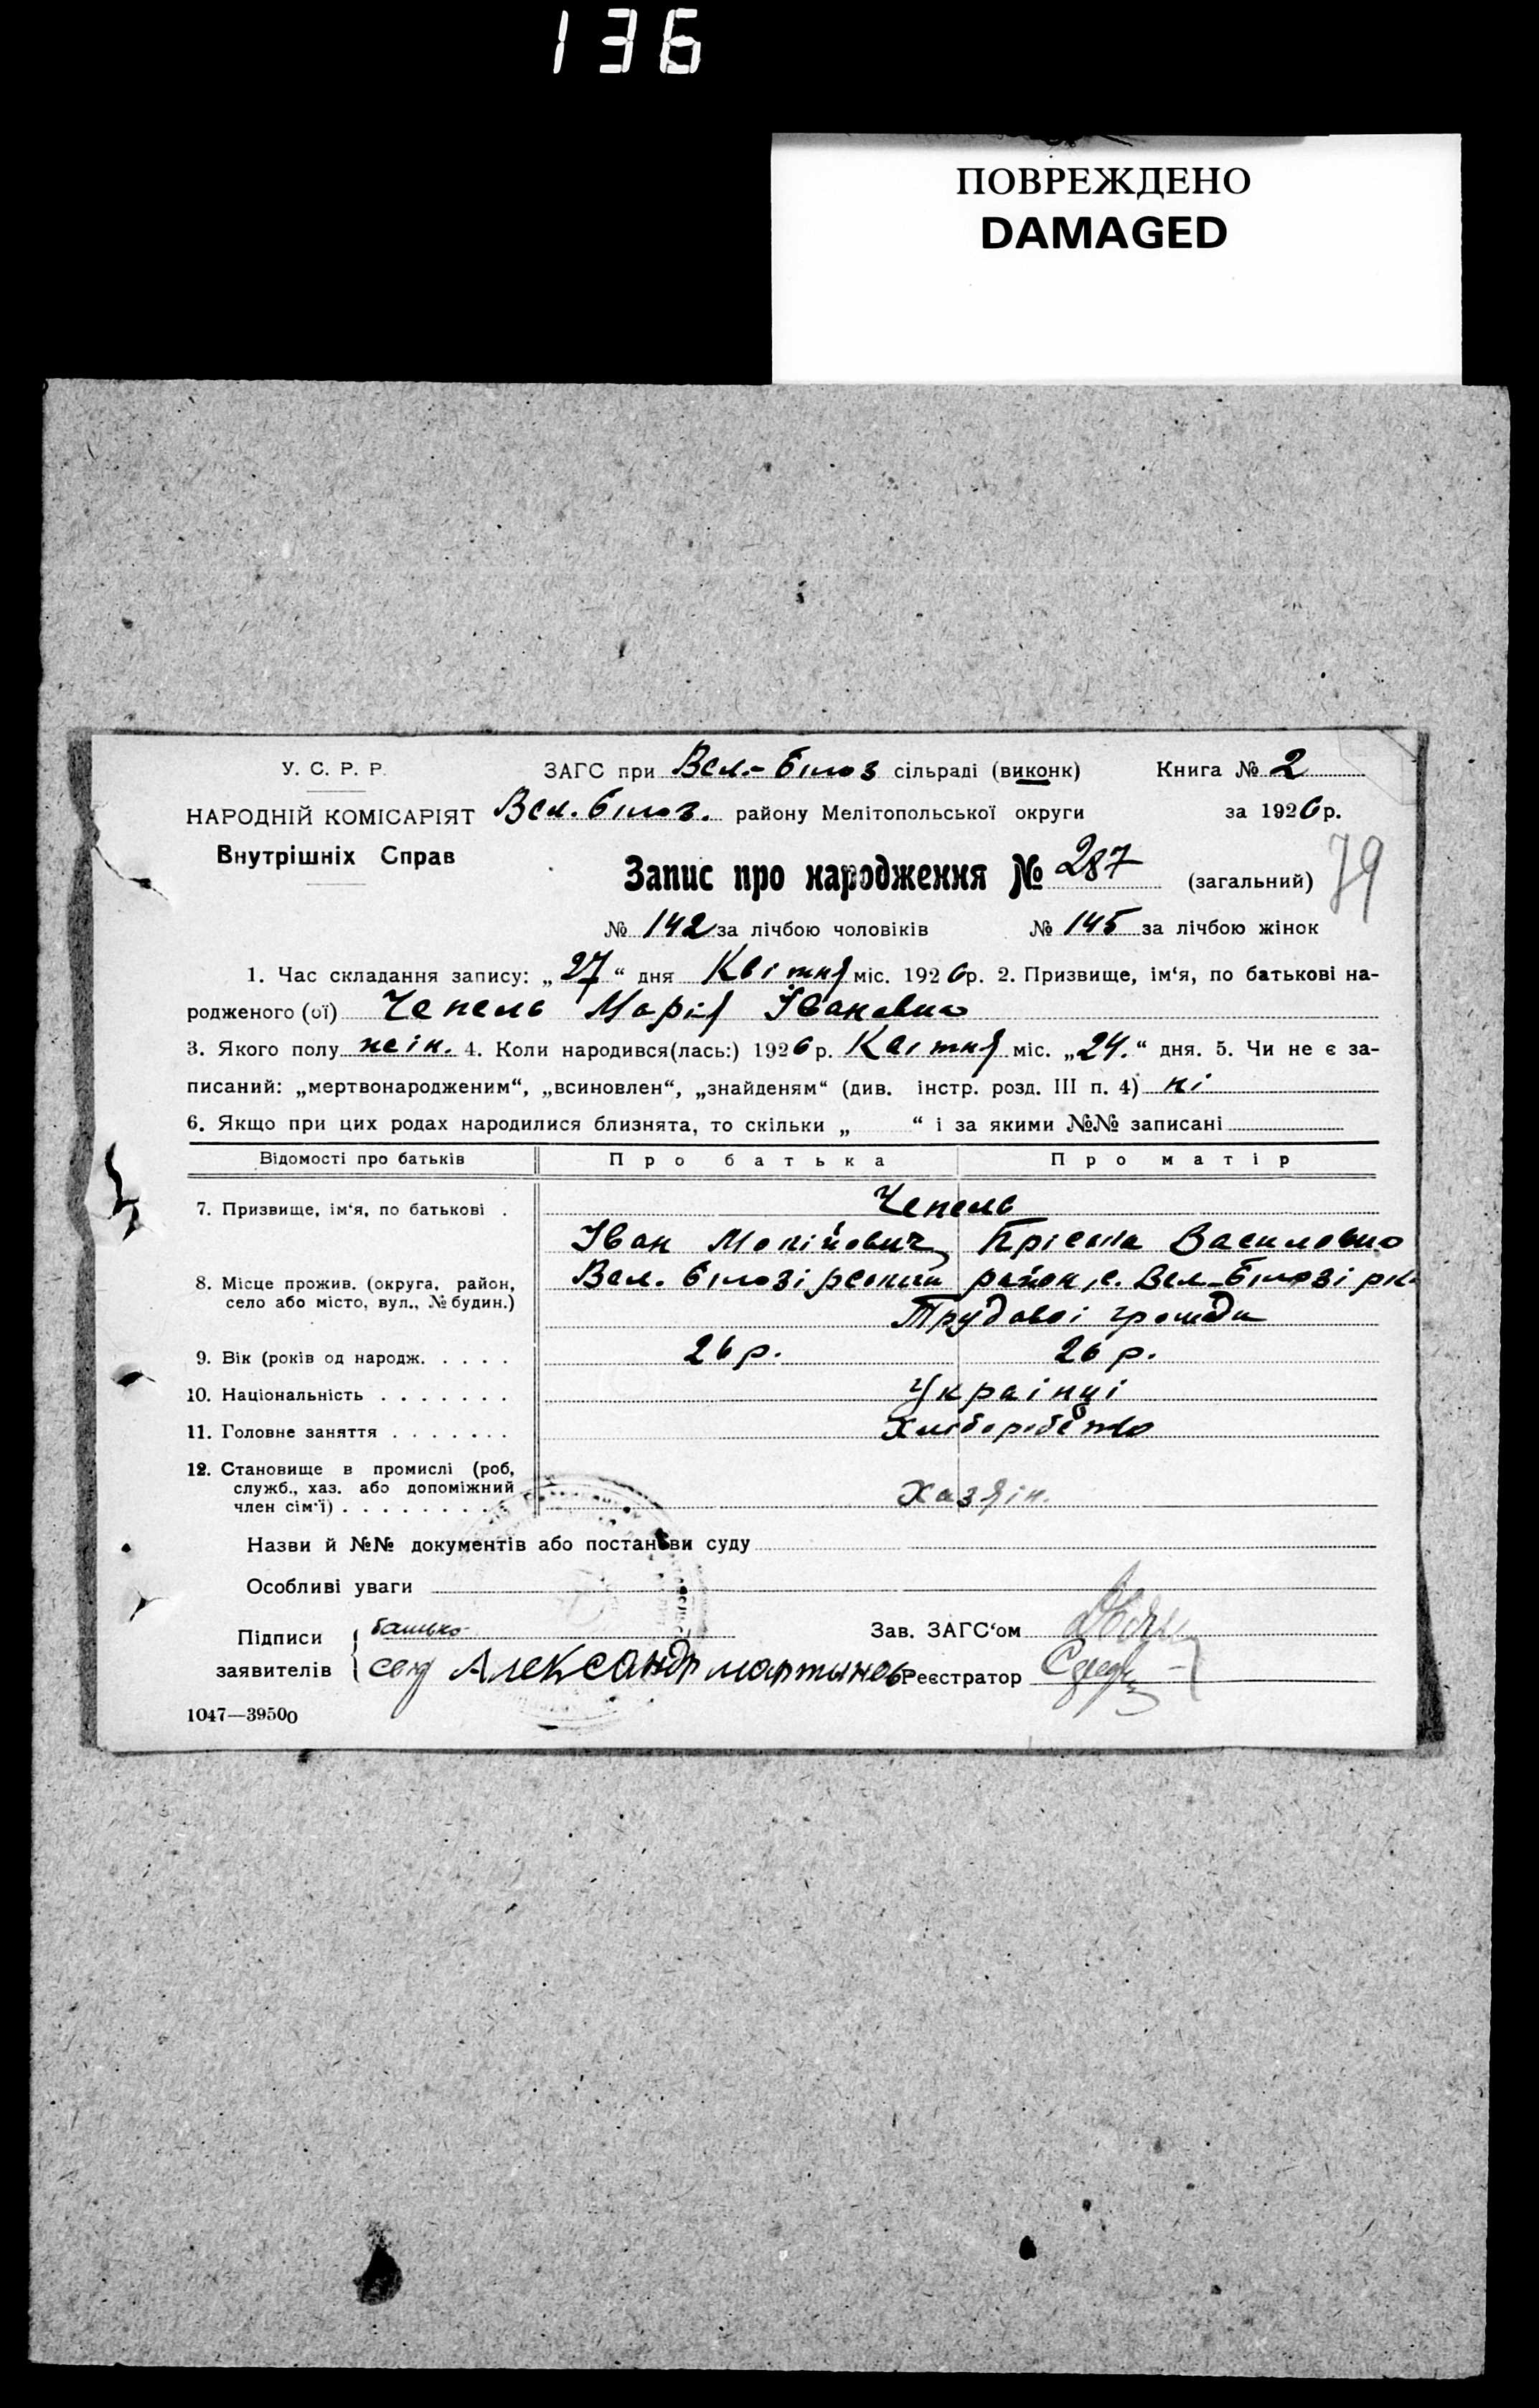 136
ПОВРЕЖДЕНО
DAMAGED
У. С. Р. Р. ЗАГС при Вел.-Білоз сільраді (виконк) Книга № 2
НАРОДНІЙ КОМІСАРІЯТ Вел. Білоз. району Мелітопольської округи за 1926 р.
Внутрішніх Справ
Запис про народження № 287 (загальний) 79
№ 142 за лічбою чоловіків № 145 за лічбою жінок
1. Час складання запису: „27“ дня Квітня міс. 1926 р. 2. Призвище, ім‘я, по батькові на-
родженого (ої) Чепель Марія Івановна
3. Якого полу жін. 4. Коли народився(лась:) 1926 р. Квітня міс. „24.“ дня. 5. Чи не є за-
писаний: „мертвонародженим“, „всиновлен“, „знайденям“ (див. інстр. розд. III п. 4) ні
6. Якщо при цих родах народилися близнята, то скільки „ “ і за якими №№ записані
Відомості про батьків Про батька Про матір
7. Призвище, ім‘я, по батькові . Чепель
Іван Василовна
8. Місце прожив. (округа, район, Вел. Білозірський район, с. Вел-Білозірк
село або місто, вул., № будин.)
Трудової громади
9. Вік (років од народж. . . . . 26 р. 26 р.
10. Національність . . . . . . . Українці
11. Головне заняття . . . . . . . Хліборобство
12. Становище в промислі (роб,
служб., хаз. або допоміжний
член сім‘ї) . . . . . . . . Хазяін.
Назви й №№ документів або постанови суду
Особливі уваги
Підписи батько Зав. ЗАГС‘ом
заявителів Александр мартынов Реєстратор
1047—39500